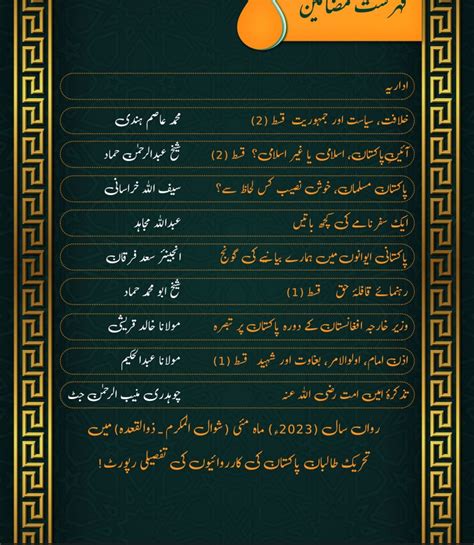 فہرست مضامین
اداریہ
خلافت، سیاست اور جمہوریت قسط (2) محمد عاصم ہندی
آئینِ پاکستان، اسلامی یا غیر اسلامی؟ قسط (2) شیخ عبدالرحمٰن حماد
پاکستان مسلمان، خوش نصیب کس لحاظ سے؟ سیف اللہ خراسانی
ایک سفر نامے کی کچھ باتیں عبداللہ مجاہد
پاکستانی ایوانوں میں ہمارے بیانیے کی گونج انجینئر سعد فرقان
رہنمائے قافلۂ حق قسط (1) شیخ ابو محمد حماد
وزیر خارجہ افغانستان کے دورہ پاکستان پر تبصرہ مولانا خالد قریشی
اذن امام، اولوالامر، بغاوت اور شہید قسط (1) مولانا عبدالحکیم
تذکرۂ امین امت رضی اللہ عنہ چوہدری منیب الرحمٰن جٹ
رواں سال (2023ء) ماہ مئی (شوال المکرم ۔ ذوالقعدہ) میں
تحریک طالبان پاکستان کی کارروائیوں کی تفصیلی رپورٹ!